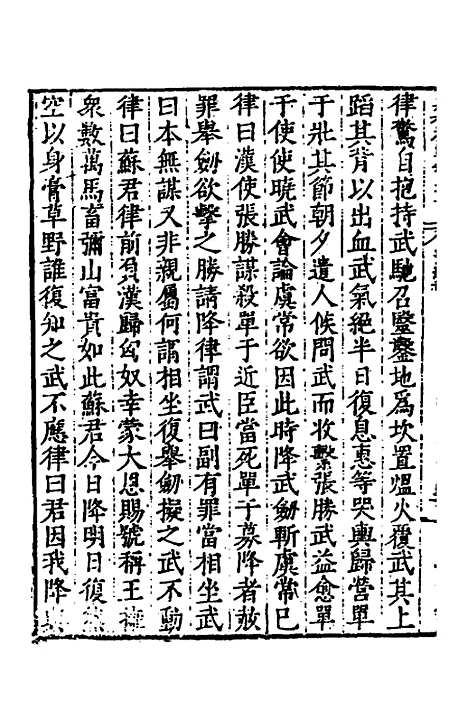 律驚自抱持武馳召毉鑿地爲坎置煴火覆武其上
蹈其背以出血武氣絕半日復息惠等哭輿歸營單
于壯其節朝夕遣人候問武而收繫張勝武益愈單
于使使曉武會論虞常欲因此時降武劒斬虞常已
律曰漢使張勝謀殺單于近臣當死單于募降者赦
罪舉劒欲擊之勝請降律謂武曰副有罪當相坐武
曰本無謀又非親屬何謂相坐復舉劒擬之武不動
律曰蘇君律前負漢歸匈奴幸蒙大恩賜號稱王擁
衆數萬馬畜彌山富貴如此蘇君今日降明日復然
空以身膏草野誰復知之武不應律曰君因我降